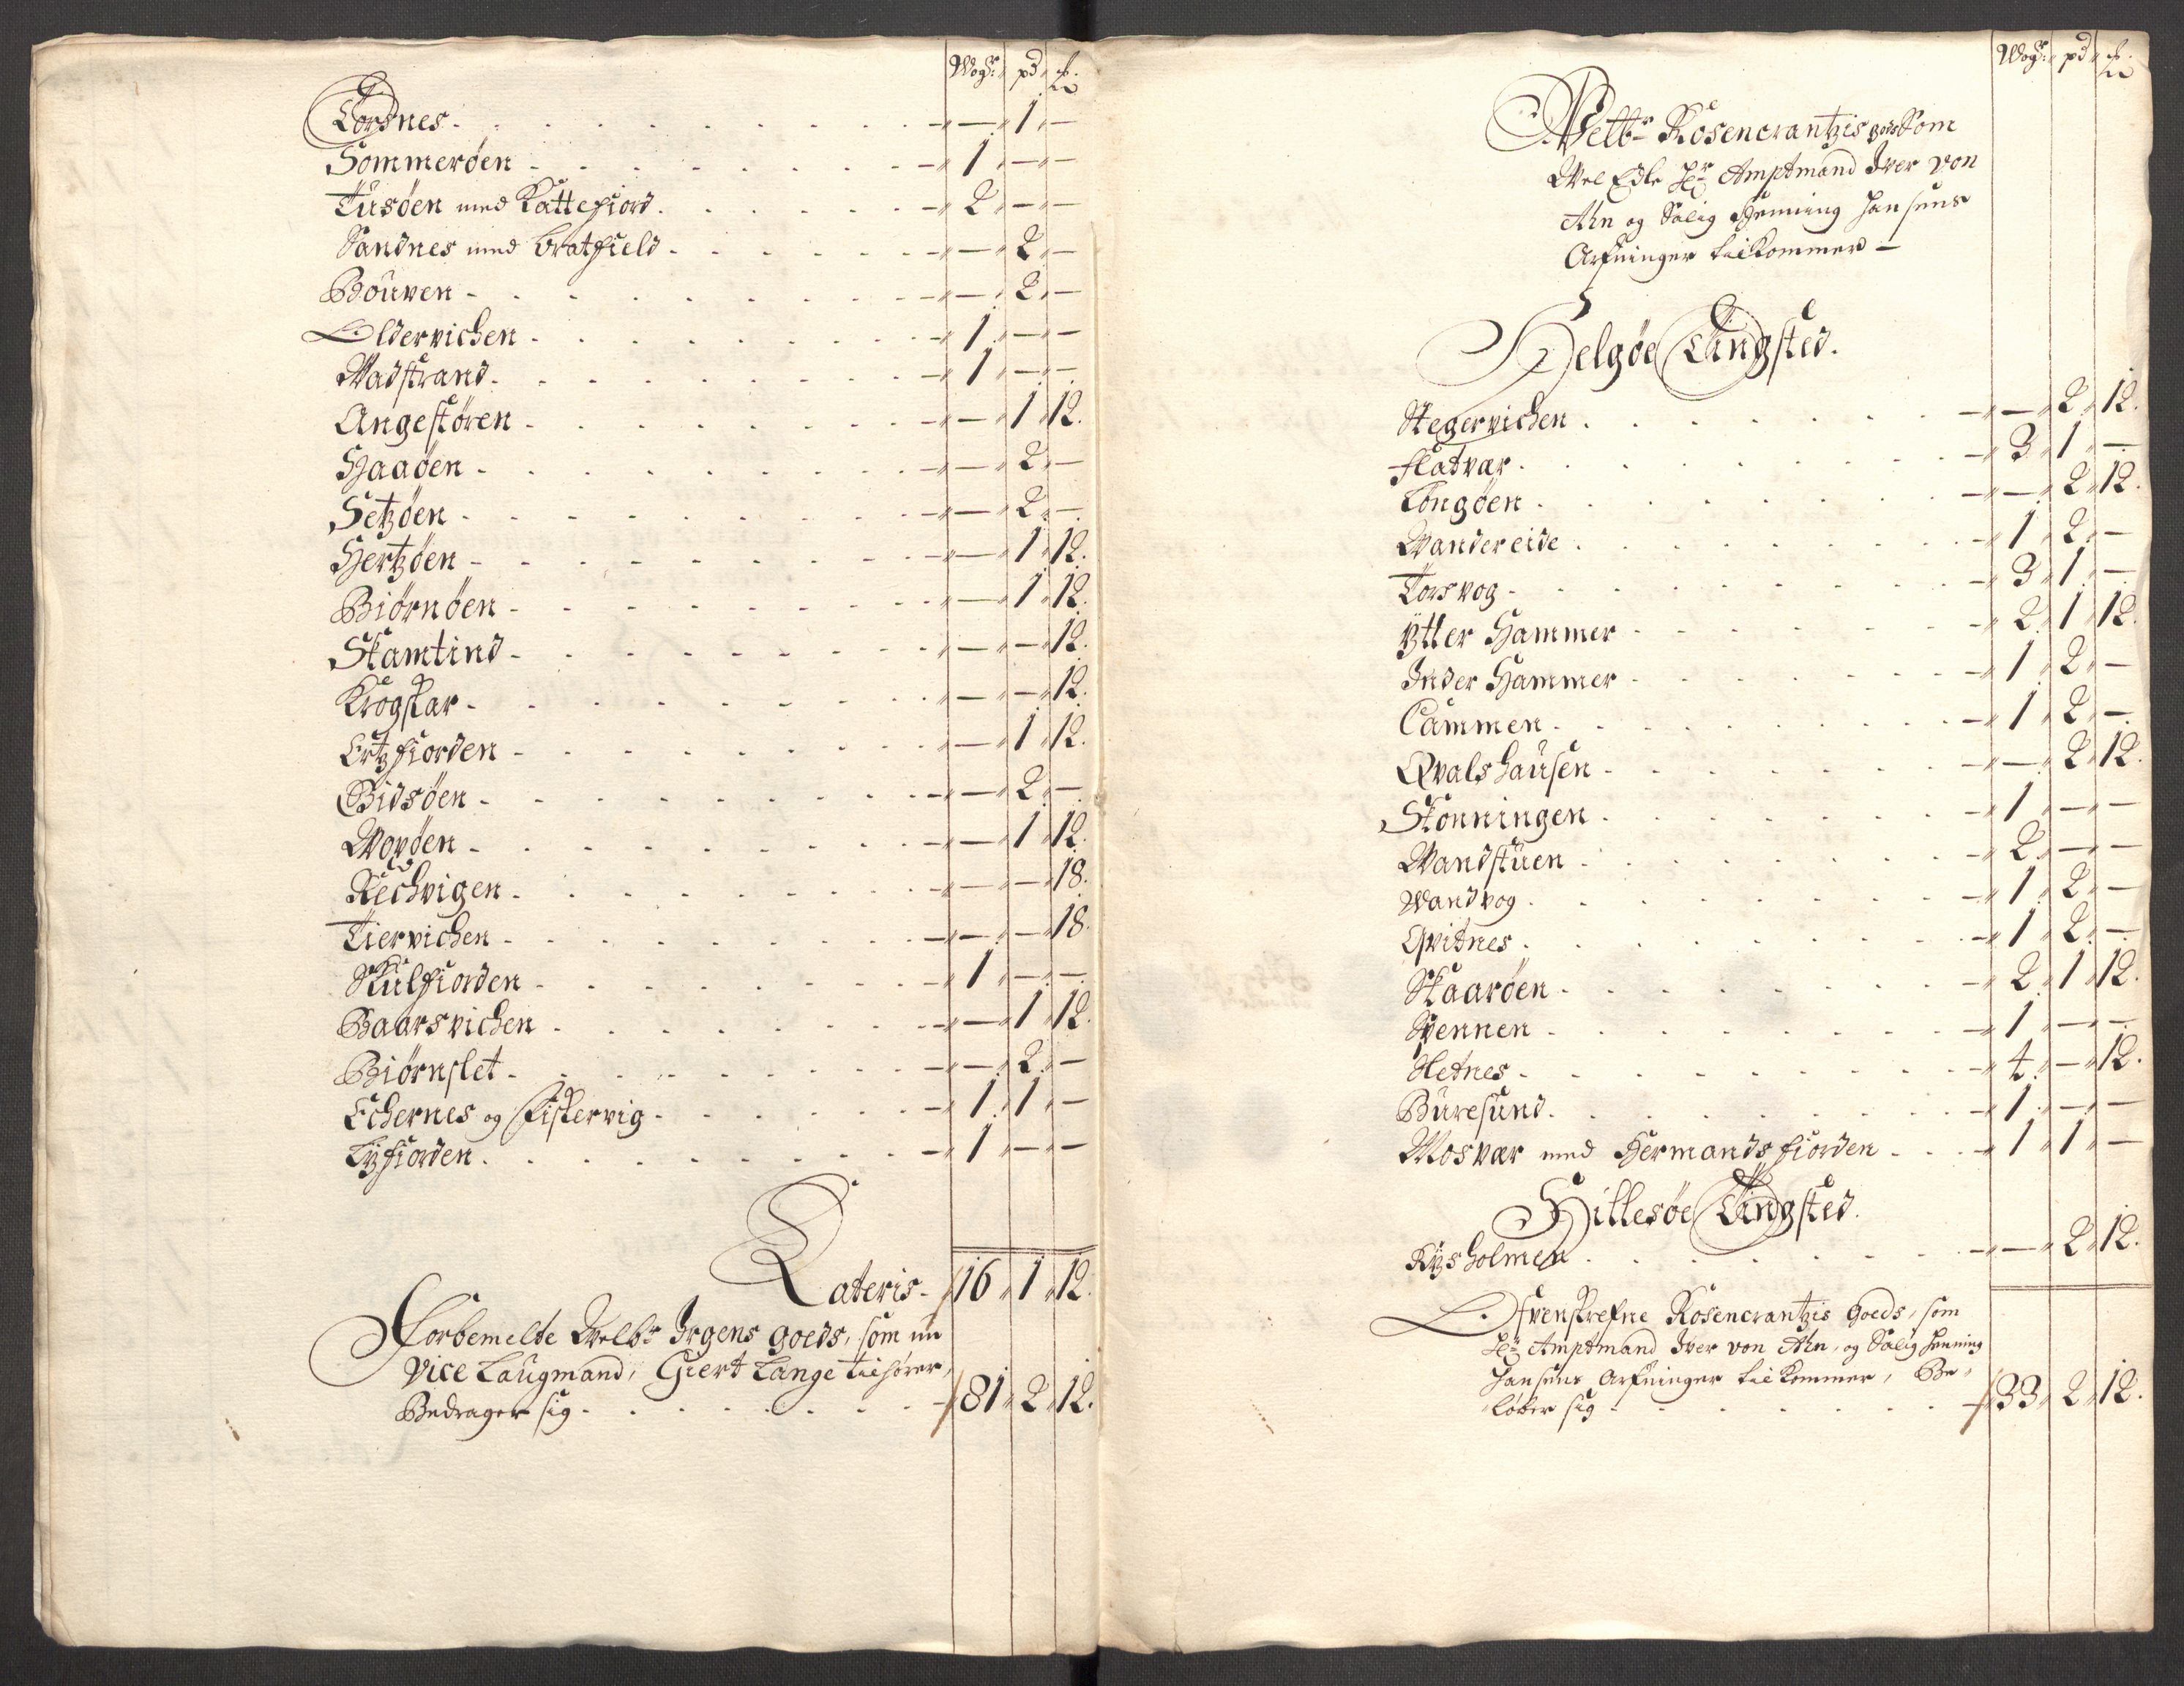 Wogr: pd. lb.
Tordnes - - 1 -
Sommerøen - 1 - -
Tusøen med Kattefiord - 2 - -
Sandnes med Bratfield - - 2 -
Bouven - - 2 -
Oldervichen - 1 - -
Wadstrand - 1 - -
Angestøren - - 1 12.
Haaøen - - 2 -
Setzøen - - 2 -
Hertzøen - - 1 12.
Biørnøen - - 1 12.
Skamtind - - - 12.
Krogskar - - - 12.
Ertzfiorden - - 1 12.
Bidsøen - - 2 -
Woyøen - - 1 12.
Rechvigen - - - 18.
Tiervichen - - - 18.
Skulfiorden - 1 - -
Baarsvichen - - 1 12.
Biørnslet - - 2 -
Echernes og Fiskervig - 1 1 -
Lyfiorden - 1 - -
Lateris - 16 1 12.
Forbemelte Welbr Irgens goeds, som nu
Vice Laugmand, Giert Lange tilhører,
Bedrager sig - 81 2 12.
Wogr: pd. lb.
Welbr Rosencrantzis gods Som
Wel Edle Hr Amptmand Iver von
Ahn og Salig Henning Jansens
Arfuinger tilkommer -
Helgøe Tingsted.
Stegervichen - - 2 12.
Flatvær - 3 1 -
Longøen - - 2 12.
Wandereide - 1 2 -
Torsvog - 3 1 -
Ytter Hammer - 2 1 12.
Inder Hammer - 1 2 -
Cammen - 1 2 -
Qvalshausen - - 2 12.
Skonningen - 1 - -
Wandstuen - 2 - -
Wandvog - 1 2 -
Qvitnes - 1 2 -
Skaarøen - 2 1 12.
Spennen - 1 - -
Hetnes - 4 - 12.
Buresund - 1 - -
Mosvær med Hermandsfiorden - 1 1 -
Hillesøe Tingsted.
Rysholmen - - 2 12.
Ofvenskrefne Rosencrantzis goeds, som
Hr Amptmand Iver von Ahn, og Salig Henning
Jansens Arfuinger tilkommer, Be-
løber sig - 33 2 12.